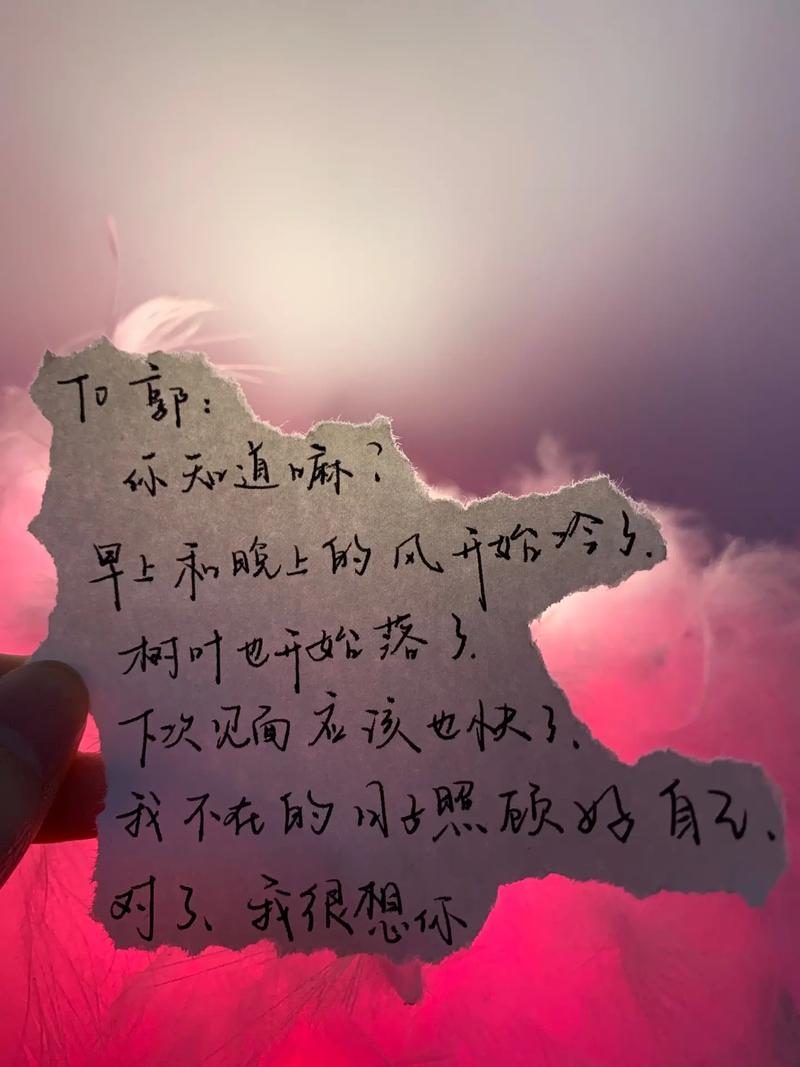 To 郭：
你知道嘛？
早上和晚上的风开始冷了.
树叶也开始落了.
下次见面应该也快了、
我不在的日子照顾好自己、
对了、我很想你